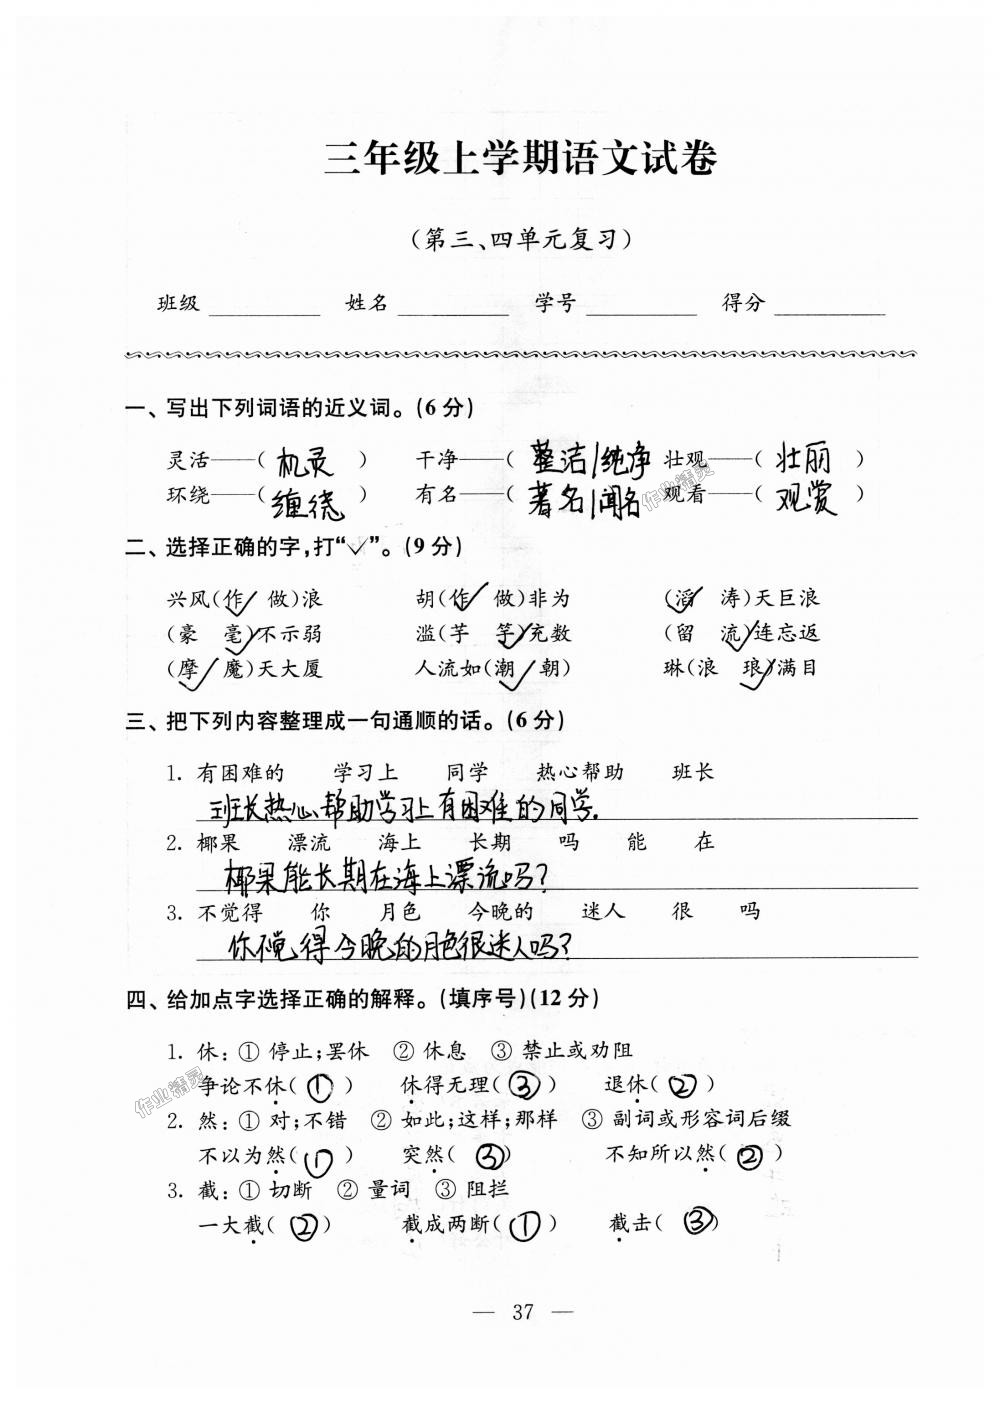 三年级上学期语文试卷
（第三、四单元复习）
班级 姓名 学号 得分
一、写出下列词语的近义词。（6分）
灵活——（机灵） 干净——（整洁/纯净 壮观——（壮丽）
环绕——（缠绕） 有名——（著名/闻名 观看——（观赏）
二、选择正确的字，打“✓”。（9分）
兴风（作✓ 做）浪 胡（作✓ 做）非为 （滔✓ 涛）天巨浪
（豪 毫✓）不示弱 滥（芋 竽✓）充数 （留 流✓）连忘返
（摩✓ 魔）天大厦 人流如（潮✓ 朝） 琳（浪 琅✓）满目
三、把下列内容整理成一句通顺的话。（6分）
1. 有困难的 学习上 同学 热心帮助 班长
班长热心帮助学习上有困难的同学.
2. 椰果 漂流 海上 长期 吗 能 在
椰果能长期在海上漂流吗？
3. 不觉得 你 月色 今晚的 迷人 很 吗
你不觉得今晚的月色很迷人吗？
四、给加点字选择正确的解释。（填序号）（12分）
1. 休：① 停止；罢休 ② 休息 ③ 禁止或劝阻
争论不休（①） 休得无理（③） 退休（②）
2. 然：① 对；不错 ② 如此；这样；那样 ③ 副词或形容词后缀
不以为然（①） 突然（③） 不知所以然（②）
3. 截：① 切断 ② 量词 ③ 阻拦
一大截（②） 截成两断（①） 截击（③）
— 37 —
作业精灵
作业精灵